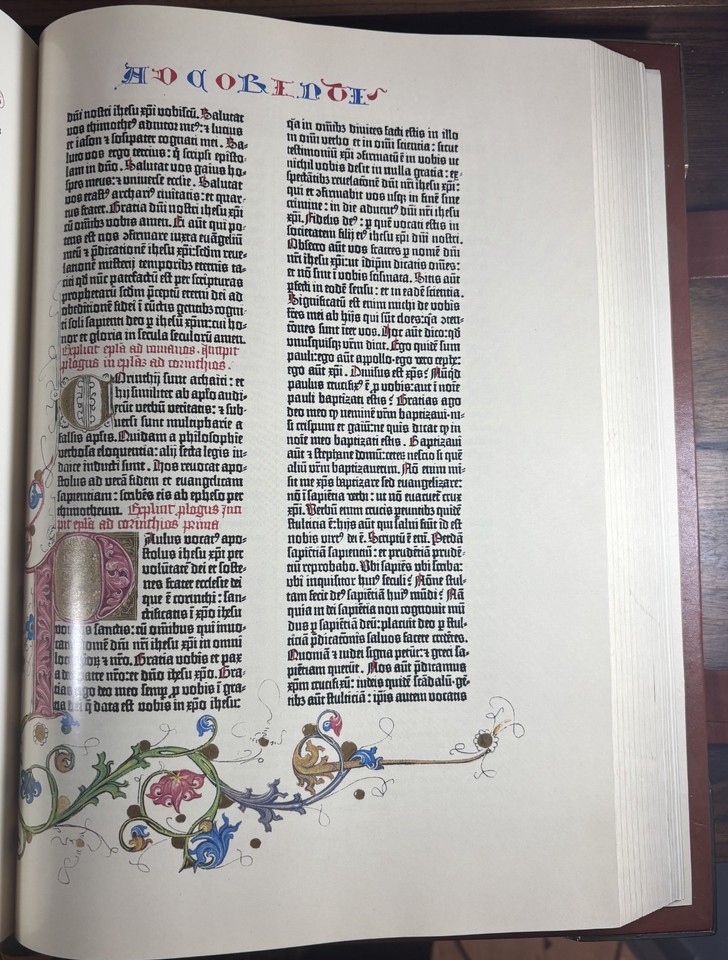 AD CORINTES
dñi nostri ihesu xpi vobiscū. Salutat
vos thimotheꝰ adiutor meꝰ: ⁊ lucius
et iason ⁊ sosipater cognati mei. Sa-
luto vos ego tercius: q̇ scripsi episto-
lam in dño. Salutat vos gaius ho-
spes meus: ⁊ universe ecclesie. Salutat
vos erastꝰ archariꝰ civitatis: et quar-
tus frater. Gratia dñi nostri ihesu xpi
cū omībꝫ vobis amen. Ei aūt qui po-
tens est vos ꝯfirmare iuxta euāgeliū
meū ⁊ p̄dicationē ihesu xpi: scdm reve-
lationē misterij temporibꝫ eternis ta-
citi qd nūc patefactū est per scripturas
prophetarū scdm p̄ceptū eterni dei ad
obeditionē fidei i cūctis gentibꝫ cogni-
ti soli sapienti deo p̱ ihesū xp̄m: cui ho-
nor et gloria in secula seculorū amen.
Explicit ep̄la ad romanos. Incipit
p̄logus in ep̄las ad corinthios.
Corinthij sunt achaici: et
hij similiter ab apl̄o audi-
erūt verbū veritatis: ⁊ sub-
versi sunt multipharie a
falsis apl̄is. Quidam a philosophie
verbosa eloquentia: alij secta legis iu-
daice inducti sunt. Hos revocat apo-
stolus ad verā fidem et evangelicam
sapientiam: scribēs eis ab epheso per
thimotheum. Explicit p̄logus Inci-
pit ep̄la ad corinthios prima
Paulus vocatꝰ apo-
stolus ihesu xpi per
volūtatē dei et soste-
nes frater ecclesie dei
que ē corinthi: san-
ctificatis ī xpo ihesu
vocatis sanctis: cū omībus qui invo-
cant nomē dñi nr̄i ihesu xpi in omni
loco ipoꝝ ⁊ nr̄o. Gratia vobis et pax
a deo patre nr̄o: et dño ihesu xpo. Gra-
tias ago deo meo semp̱ p̱ vobis ī gra-
tia dei q̄ data est vobis in xpo ihesu:
q̇a in omībꝫ divites facti estis in illo
in omī verbo et in omī scientia: sicut
testimoniū xpi ꝯfirmatū ē in vobis ut
nichil vobis desit in ulla gratia: ex-
spectātibꝫ revelationē dñi nr̄i ihesu xpi:
qui et ꝯfirmabit vos usqꝫ in finē sine
crimine: in die adventꝰ dñi nr̄i ihesu
xpi. Fidelis deꝰ: p̱ quē vocati estis in
societatem filij eiꝰ ihesu xpi dñi nostri.
Obsecro aūt vos fratres p̱ nomē dñi
nr̄i ihesu xpi: ut idip̄m dicatis om̄es:
et nō sint ī vobis scismata. Sitis aūt
p̱fecti in eodē sensu: et in eadē scientia.
Significatū est enim michi de vobis
fr̄es mei ab hijs qui sūt cloes: q̇a ꝯten-
cōnes sunt iter vos. Hoc aūt dico: qd
unusquisqꝫ vr̄m dicit. Ego quidē sum
pauli: ego aūt appollo: ego vero cephe:
ego aūt xpi. Divisus est xp̄s? Nūqd
paulus crucifixꝰ ē p̱ vobis: aut ī noīe
pauli baptizati estis? Gratias ago
deo meo q̄ neminē vr̄m baptizavi: ni-
si crispum et gaiū: ne quis dicat q̄ in
noīe meo baptizati estis. Baptizavi
aūt ⁊ stephane domū: ceteꝝ nescio si quē
aliū vr̄m baptizaverim. Nō enim mi-
sit me xp̄s baptizare sed evangelizare:
nō ī sapiētia verbi: ut nō evacuet̄ crux
xpi. Verbū enim crucis pereūtibꝫ quidē
stulticia ē: hijs aūt qui salvi fiūt id est
nobis virtꝰ dei ē. Scriptū ē em̄. Perdā
sapiētiā sapientū: et prudētiā prudē-
tū reprobabo. Ubi sapiēs ubi scriba:
ubi inquisitor huiꝰ seculi? Nōne stul-
tam fecit deꝰ sapiētiā huiꝰ mūdi? Nā
quia in dei sapiētia non cognovit mū
dus p̱ sapiētiā deū: placuit deo p̱ stul-
ticiā p̄dicatōnis salvos facere credētes.
Quoniā ⁊ iudei signa petūt: ⁊ greci sa-
piētiam querūt. Nos aūt p̄dicamus
xp̄m crucifixū: iudeis quidē scādalū: gē-
tibꝫ aūt stulticiā: ip̄is autem vocatis